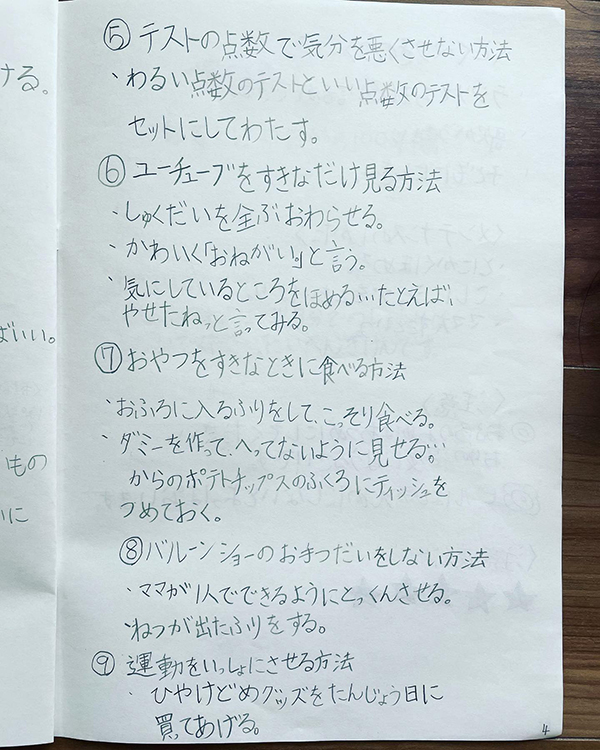 ける。
ばいい。
もの
に
⑤ テストの点数で気分を悪くさせない方法
・わるい点数のテストといい点数のテストを
セットにしてわたす。
⑥ ユーチューブをすきなだけ見る方法
・しゅくだいを全ぶおわらせる。
・かわいく「おねがい。」と言う。
・気にしているところをほめる…たとえば、
やせたねっと言ってみる。
⑦ おやつをすきなときに食べる方法
・おふろに入るふりをして、こっそり食べる。
・ダミーを作って、へってないように見せる…
からのポテトチップスのふくろにティッシュを
つめておく。
⑧ バルーンショーのお手つだいをしない方法
・ママが1人でできるようにとっくんさせる。
・ねつが出たふりをする。
⑨ 運動をいっしょにさせる方法
・ひやけどめグッズをたんじょう日に
買てあげる。
4